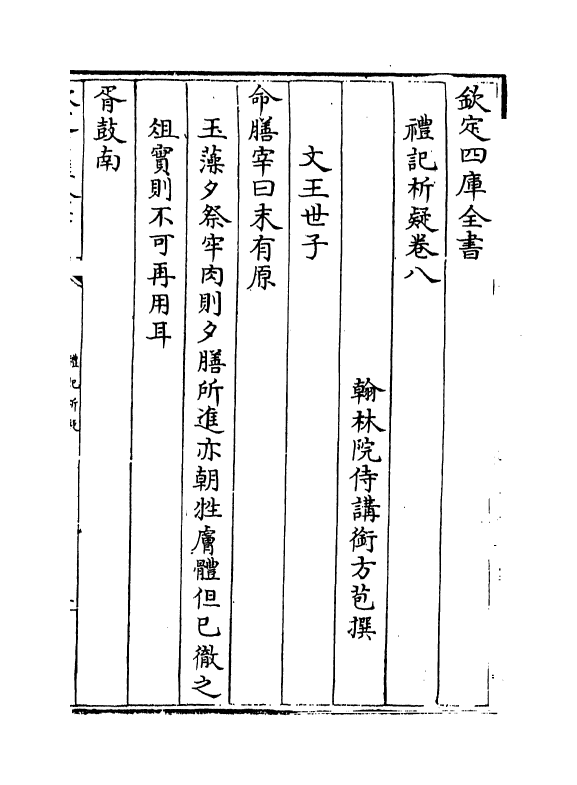 欽定四庫全書
禮記析疑卷八
翰林院侍講銜方苞撰
文王世子
命膳宰曰末有原
玉藻夕祭牢肉則夕膳所進亦朝牲膚體但已徹之
俎實則不可再用耳
胥鼓南
禮記析疑